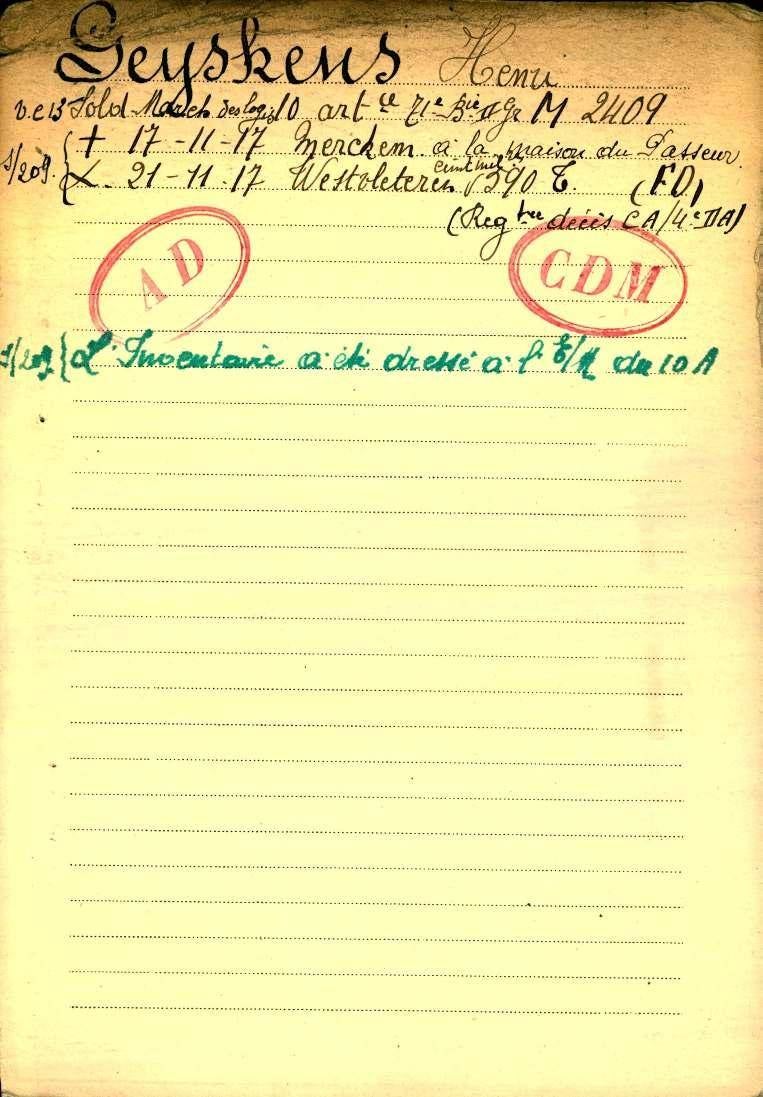 Geyskens Henri
v.c 13 Sold March des logis 10 art ie 71e Bie II Gr M 2409
+ 17-11-17 Merckem à la maison du Passeur
1/209.
21-11-17 Westvleteren cimt mil 590 T. (FD)
(Reg tre décès CA/4e DA)
AD
CDM
1/209 { L'Inventaire a été dressé à l' E/M du 10 A